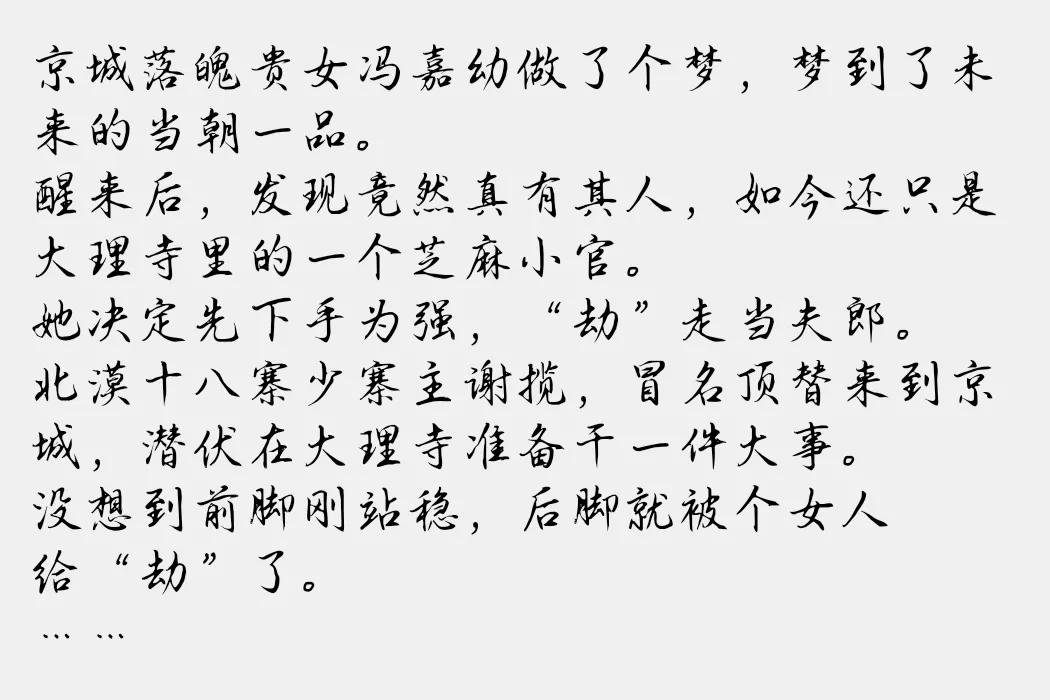 京城落魄贵女冯嘉幼做了个梦，梦到了未
来的当朝一品。
醒来后，发现竟然真有其人，如今还只是
大理寺里的一个芝麻小官。
她决定先下手为强，“劫”走当夫郎。
北漠十八寨少寨主谢揽，冒名顶替来到京
城，潜伏在大理寺准备干一件大事。
没想到前脚刚站稳，后脚就被个女人
给“劫”了。
……